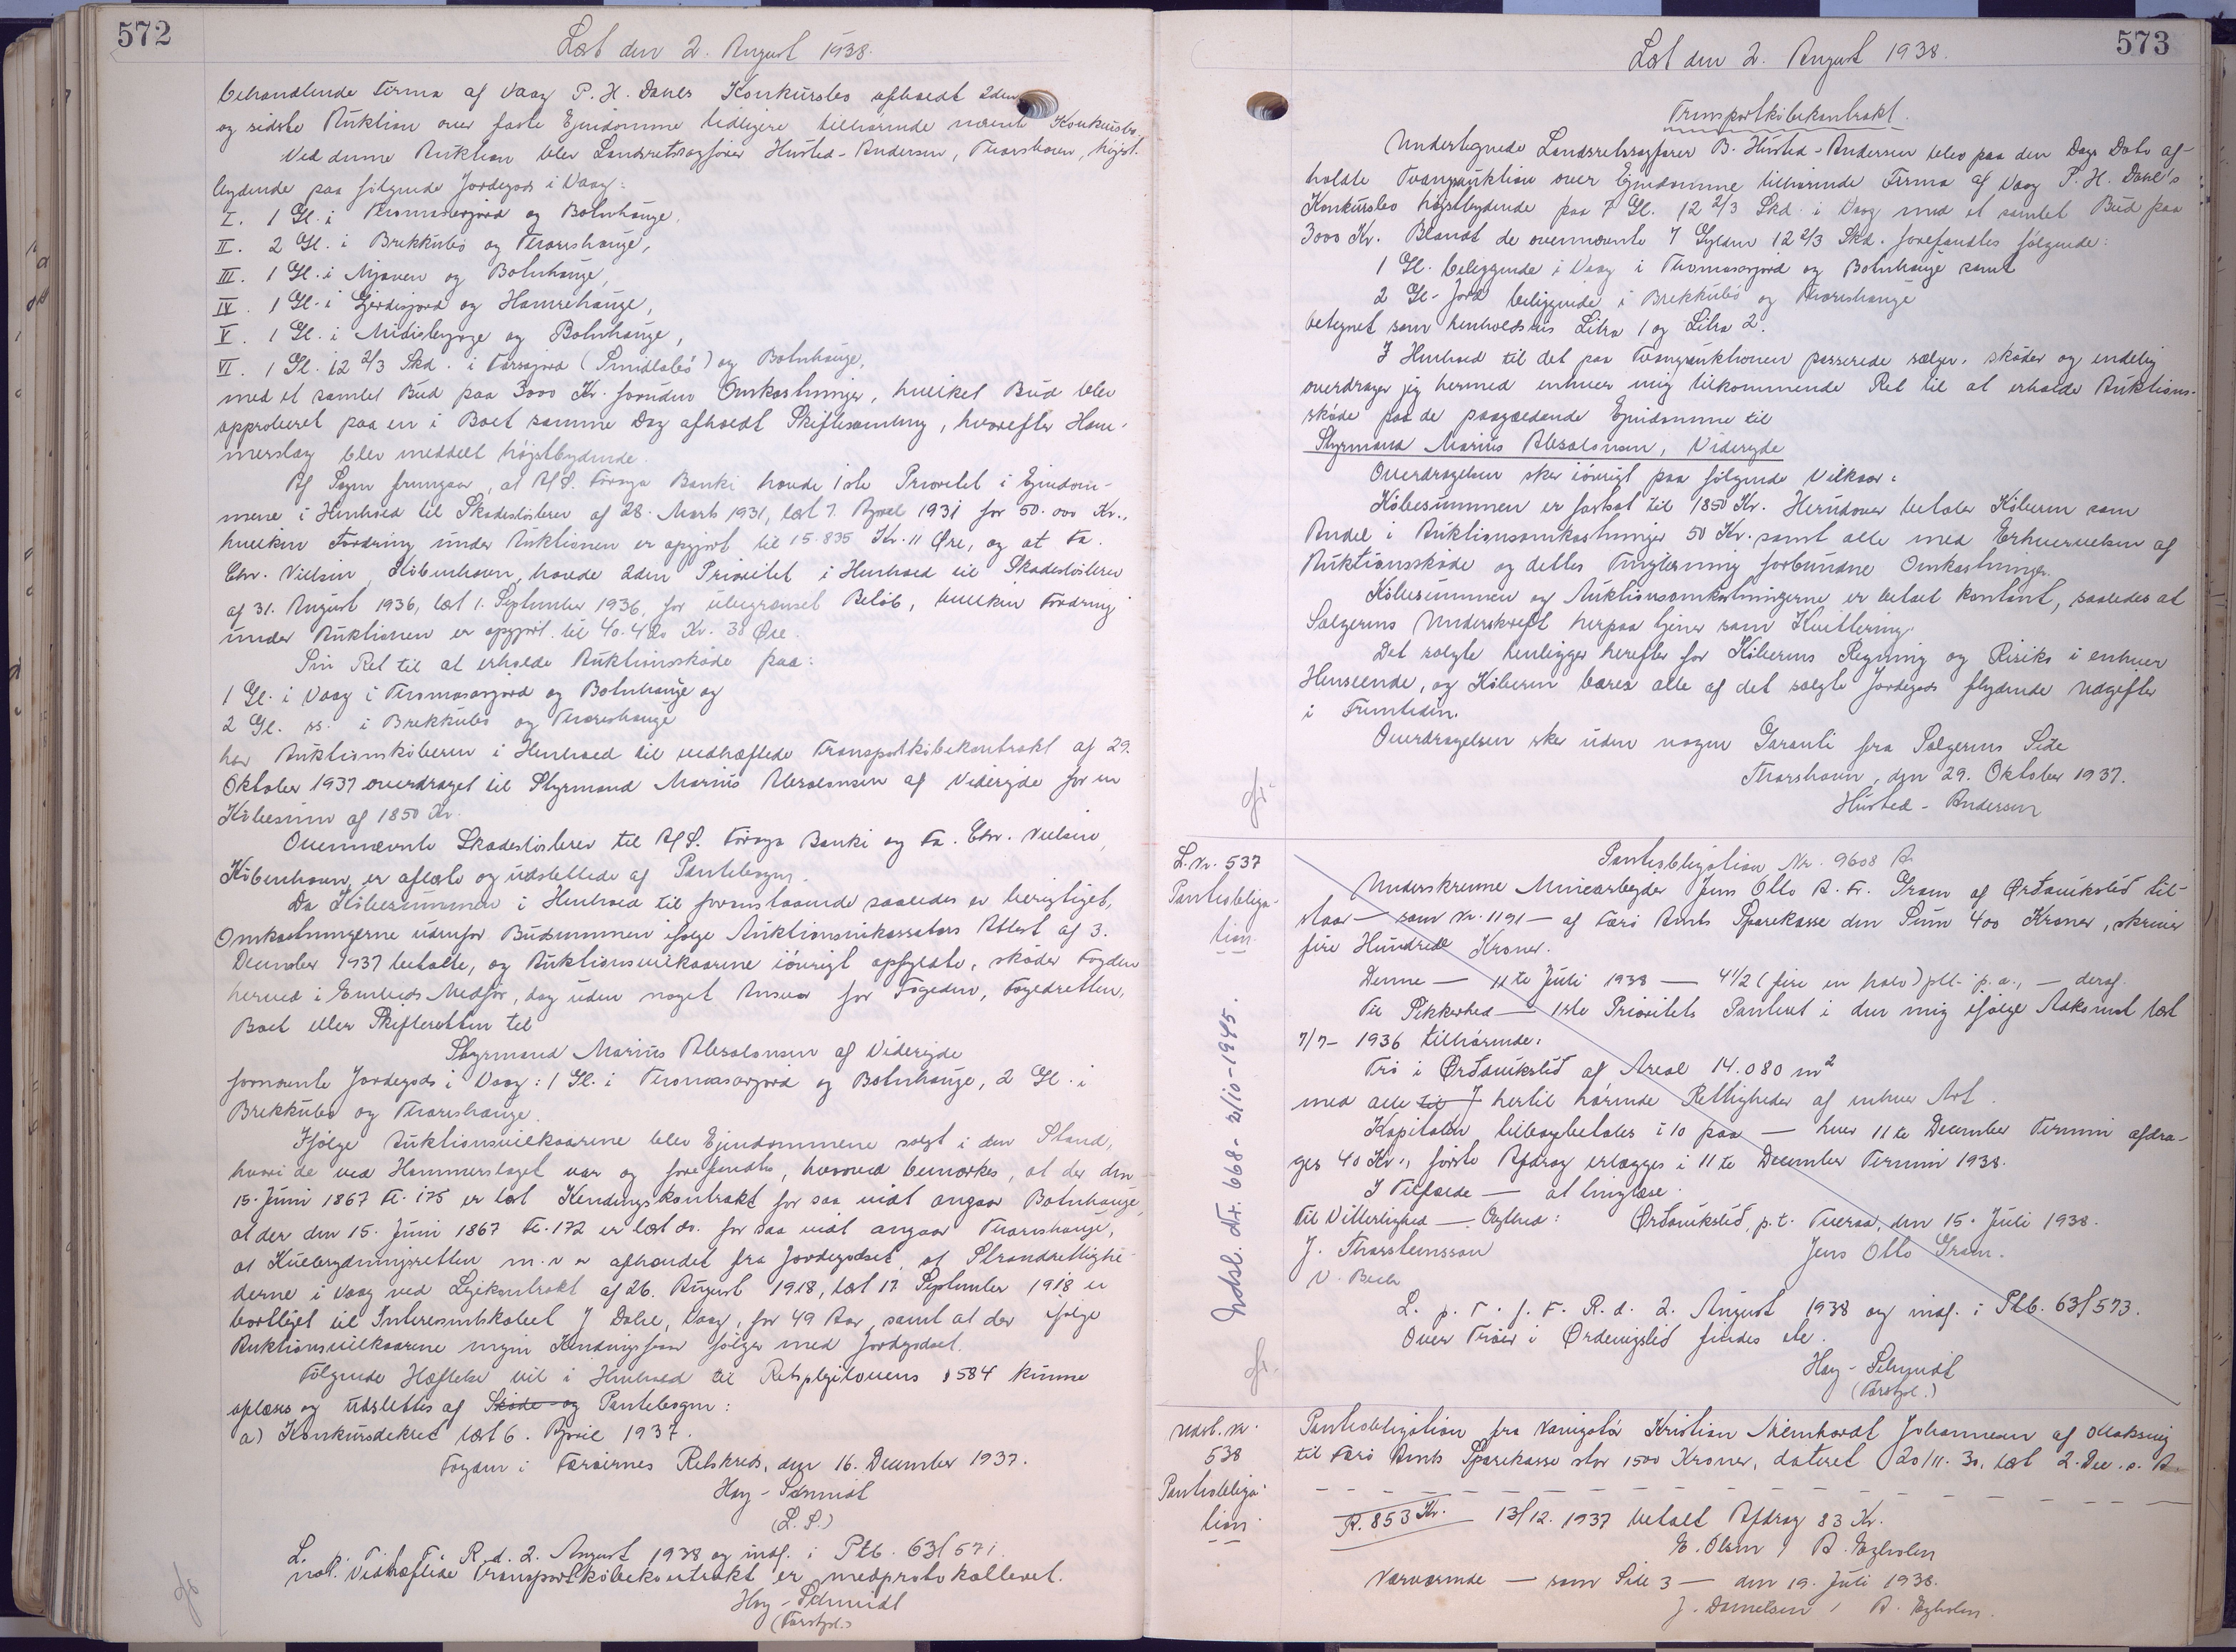 572
Læst den 2. August 1938.
behandlende Firma af Vaag P. H. Dahls Konkursbo afholdt 2den
og sidste Auktion over faste Ejendomme tidligere tilhørende nævnte Konkursbo.
Ved denne Auktion blev Landsretssagfører Husted-Andersen, Thorshavn, højst-
bydende paa følgende Jordegods i Vaag:
I. 1 Gl. i Thomasarjord og Botnhauge,
II. 2 Gl. i Brekkubø og Thoreshauge,
III. 1 Gl. i Njaven og Botnhauge,
IV. 1 Gl. i Gjerdisjord og Hamrehauge,
V. 1 Gl. i Midisbygge og Botnhauge,
VI. 1 Gl. 12 2/3 Skd. i Farsajord (Smidlabø) og Botnhauge,
med et samlet Bud paa 3000 Kr. foruden Omkostninger, hvilket Bud blev
approberet paa en i Boet samme Dag afholdt Skiftesamling, hvorefter Ham-
merslag blev meddelt højstbydende.
Af Sagen fremgaar, at A/S. Føroya Banki havde 1ste Prioritet i Ejendom-
mene i Henhold til Skadesløsbrev af 28. Marts 1931, læst 7. April 1931 for 50.000 Kr.,
hvilken Fordring under Auktionen er opgjort til 15.835 Kr. 11 Øre, og at Fa.
Chr. Nielsen, København, havde 2den Prioritet i Henhold til Skadesløsbrev
af 31. August 1936, læst 1. September 1936, for ubegrænset Beløb, hvilken Fordring
under Auktionen er opgjort til 40.420 Kr. 38 Øre.
Sin Ret til at erholde Auktionsskøde paa:
1 Gl. i Vaag i Thomasarjord og Botnhauge og
2 Gl. ss. i Brekkubø og Thoreshauge
har Auktionskøberen i Henhold til vedhæftede Transportkøbekontrakt af 29.
Oktober 1937 overdraget til Styrmand Marius Absalonsen af Videreide for en
Købesum af 1850 Kr.
Ovennævnte Skadesløsbrev til A/S. Føroya Banki og Fa. Chr. Nielsen,
København, er aflæst og udslettede af Pantebogen.
Da Købesummen i Henhold til foranstaaende saaledes er berigtiget,
Omkostningerne udenfor Budsummen ifølge Auktionsinkassators Attest af 3.
December 1937 betalte, og Auktionsvilkaarene iøvrigt opfyldte, skøder Fogden
herved i Embeds Medfør, dog uden noget Ansvar for Fogeden, Fogedretten,
Boet eller Skifteretten til
Styrmand Marius Absalonsen af Videreide
fornævnte Jordegods i Vaag: 1 Gl. i Thomasarjord og Botnhauge, 2 Gl. i
Brekkubø og Thoreshauge.
Ifølge Auktionsvilkaarene blev Ejendommene solgt i den Stand,
hvori de ved Hammerslaget var og forefandtes, hvorved bemærkes, at der den
15. Juni 1867 Fl. 175 er læst Kendingskontrakt for saa vidt angaar Botnhauge,
at der den 15. Juni 1867 Fl. 172 er læst do. for saa vidt angaar Thoreshauge,
at Kuebrydningsretten m.v. er afhændet fra Jordegodset, at Strandrettighe-
derne i Vaag ved Lejekontrakt af 26. August 1918, læst 17. September 1918 er
bortlejet til Interessentskabet J Dahl, Vaag, for 49 Aar, samt at der ifølge
Auktionsvilkaarene ingen Kendingsfaar følger med Jordegodset.
Følgende Hæftelse vil i Henhold til Retsplejelovens § 584 kunne
aflæses og udslettes af Skøde- og Pantebogen:
a) Konkursdekret læst 6. April 1937.
Fogden i Færøernes Retskreds, den 16. December 1937.
Høg-Schmidt
(L.S.)
L. p. T. f. F. R. d. 2. August 1938 og indf. i Ptb. 63/571.
not. Vedhæftede Transportkøbekontrakt er medprotokolleret.
Høg-Schmidt
(Forstpl.)
573
Læst den 2. August 1938.
Transportkøbekontrakt.
Undertegnede Landsretssagfører B. Husted-Andersen blev paa den Dags Dato af-
holdte Tvangsauktion over Ejendomme tilhørende Firma af Vaag P. H. Dahl's
Konkursbo højstbydende paa 7 Gl. 12 2/3 Skd. i Vaag med et samlet Bud paa
3000 Kr. Blandt de ovennævnte 7 Gylden 12 2/3 Skd. forefandtes følgende:
1 Gl. beliggende i Vaag i Thomasarjord og Botnhauge samt
2 Gl. Jord beliggende i Brekkubø og Thoreshauge
betegnet som henholdsvis Litra 1 og Litra 2.
I Henhold til det paa Tvangsauktionen passerede sælger, skøder og endelig
overdrager jeg hermed enhver mig tilkommende Ret til at erholde Auktions-
skøde paa de paagældende Ejendomme til
Styrmand Marius Absalonsen, Videreide
Overdragelsen sker iøvrigt paa følgende Vilkaar:
Købesummen er fastsat til 1850 Kr. Herudover betaler Køberen som
Andel i Auktionsomkostninger 50 Kr. samt alle med Erhvervelsen af
Auktionsskøde og dettes Tinglæsning forbundne Omkostninger.
Købesummen og Auktionsomkostningerne er betalt kontant, saaledes at
Sælgerens Underskrift herpaa tjener som Kvittering.
Det solgte henligger herefter for Køberens Regning og Risiko i enhver
Henseende, og Køberen bærer alle af det solgte Jordegods flydende Udgifter
i Fremtiden.
Overdragelsen sker uden nogen Garanti fra Sælgerens Side
Thorshavn, den 29. Oktober 1937.
Husted-Andersen
L.Nr. 537
Pantobliga-
tion
Pantobligation Nr. 9608 A
Underskrevne Minearbejder Jens Otto A. Fr. Gram af Ørðavikslið til-
staar — som Nr. 1191 — af Færø Amts Sparekasse den Sum 400 Kroner, skriver
fire Hundrede Kroner.
Denne — 11te Juli 1938 — 4 1/2 (fire en halv) pCt. p.a., — deraf.
Til Sikkerhed — 1ste Prioritets Panteret i den mig ifølge Adkomst læst
7/7- 1936 tilhørende:
Trø i Ørðavikslið af Areal 14.080 m²
med alle til J hertil hørende Rettigheder af enhver Art.
Kapitalen tilbagebetales i 10 paa — hver 11te December Termin afdra-
ges 40 Kr., første Afdrag erlægges i 11te December Termin 1938.
I Tilfælde — at tinglæse.
Til Vitterlighed — Myndighed: Ørðavikslið, p.t. Tveraa, den 15. Juli 1938.
J. Thorsteinsson Jens Otto Gram.
V. Bech
L. p. T. f. F. R. d. 2. August 1938 og indf. i Ptb. 63/573.
Over Trøer i Ørdevigslid findes ete.
Høg-Schmidt
(Forstpl.)
Udsl. Nr. 668 - 2/10-1945.
Udsl. Nr.
538
Pantobliga-
tion
Pantobligation fra Kristian Meinhardt Johannesen af Klaksvig
til Færø Amts Sparekasse stor 1500 Kroner, dateret 20/11. 30, læst 2. Dec. s. A.
R. 853 Kr. 13/12. 1937 betalt Afdrag 83 Kr.
E. Olsen / A. Egholm
Nærværende — som Side 3 — den 19. Juli 1938.
J. Danielsen / A. Egholm.